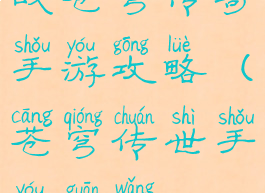 shǒu yóu gōng lüè
手游攻略（
cāng qióng chuán shì shǒu
苍穹传世手
yóu guān wǎng